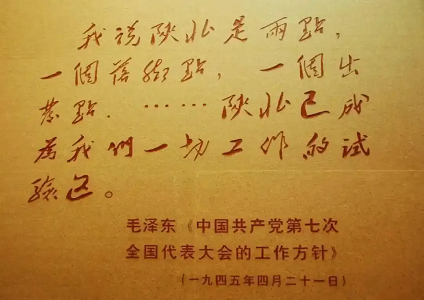 我说陕北是兩點，
一個落脚點，一個出
發點．……陕北已成
為我們一切工作的试
驗区。
毛泽东《中国共产党第七次
全国代表大会的工作方针》
（一九四五年四月二十一日）